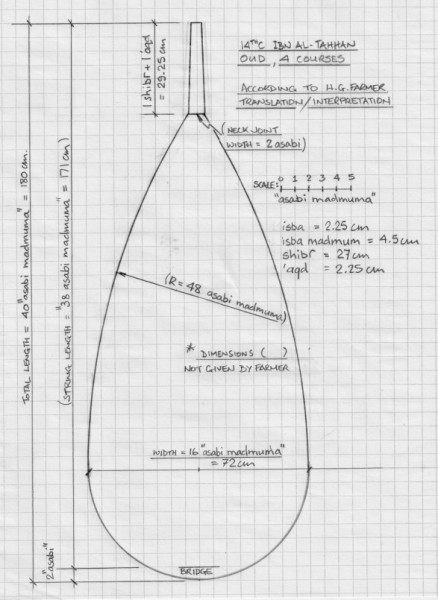 14THC IBN AL-TAHHAN
OUD, 4 COURSES
ACCORDING TO H.G. FARMER
TRANSLATION/INTERPRETATION
1 shibr + 1 'aqd
= 29.25 cm
(NECK JOINT
WIDTH = 2 asabi)
SCALE: 0 1 2 3 4 5
"asabi madmuma"
isba = 2.25 cm
isba madmum = 4.5 cm
shibr = 27 cm
'aqd = 2.25 cm
TOTAL LENGTH = 40 "asabi madmuma" = 180 cm.
(STRING LENGTH = "38 asabi madmuma" = 171 cm)
(R = 48 asabi madmuma)
* DIMENSIONS ( )
NOT GIVEN BY FARMER
WIDTH = 16 "asabi madmuma"
= 72 cm
2 "asabi"
BRIDGE